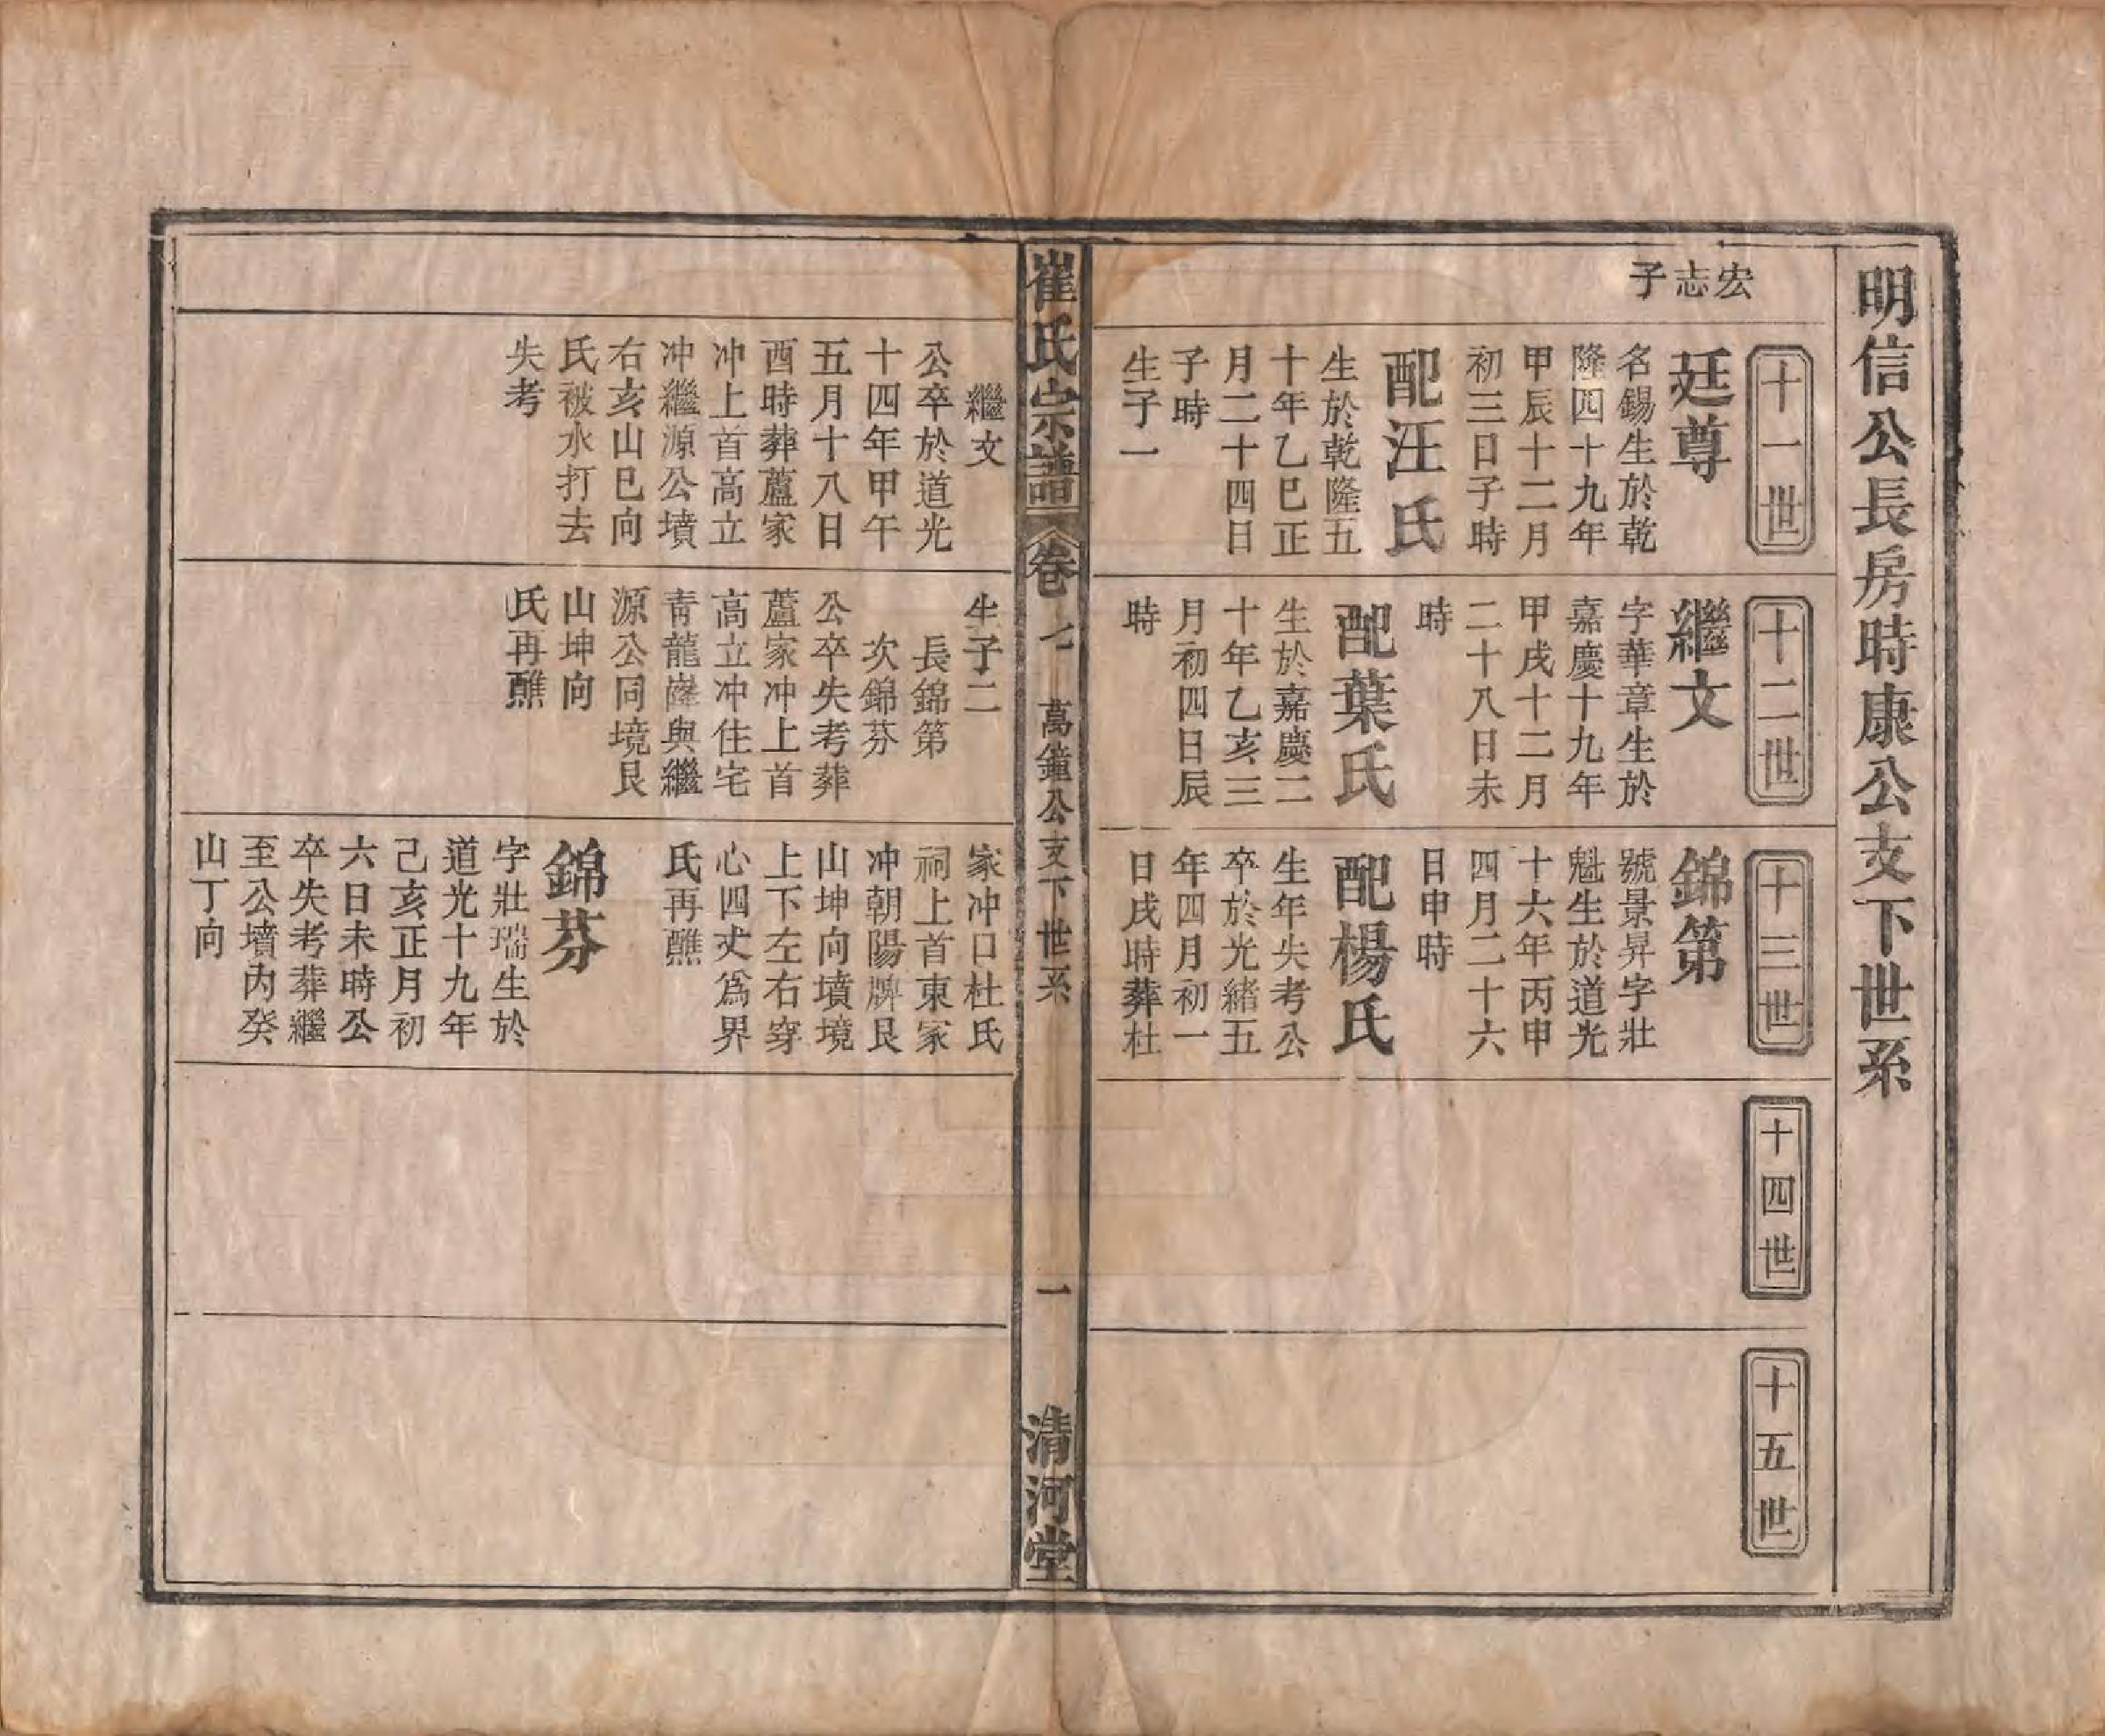 明信公長房時康公支下世系
宏志子
十一世
廷尊
名錫生於乾
隆四十九年
甲辰十二月
初三日子時
配汪氏
生於乾隆五
十年乙巳正
月二十四日
子時
生子一
十二世
繼文
字華章生於
嘉慶十九年
甲戌十二月
二十八日未
時
配葉氏
生於嘉慶二
十年乙亥三
月初四日辰
時
十三世
錦第
號景昇字壯
魁生於道光
十六年丙申
四月二十六
日申時
配楊氏
生年失考公
卒於光緒五
年四月初一
日戌時葬杜
十四世
十五世
崔氏宗譜
卷七
萬鐘公支下世系
一
清河堂
繼文
公卒於道光
十四年甲午
五月十八日
酉時葬蘆家
冲上首高立
冲繼源公墳
右亥山巳向
氏被水打去
失考
生子二
長錦第
次錦芬
公卒失考葬
蘆家冲上首
高立冲住宅
青龍嶐與繼
源公同境艮
山坤向
氏再醮
家冲口杜氏
祠上首東冡
冲朝陽牌艮
山坤向墳境
上下左右穿
心四丈爲界
氏再醮
錦芬
字壯瑞生於
道光十九年
己亥正月初
六日未時公
卒失考葬繼
至公墳內癸
山丁向